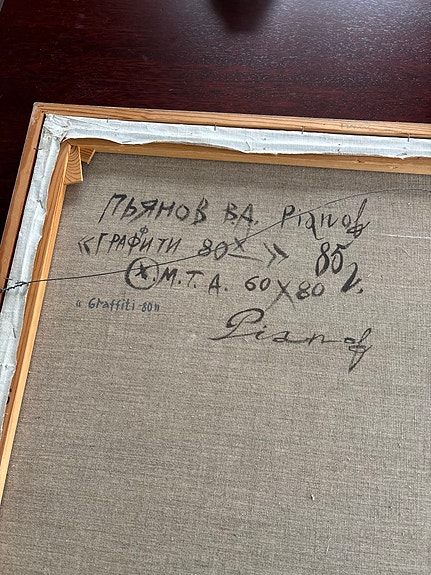 ПЬЯНОВ В.А. Pianoff
«ГРАФИТИ 80х» 85 г.
Х.М.Т.А. 60X80
"Graffiti-80"
Pianoff